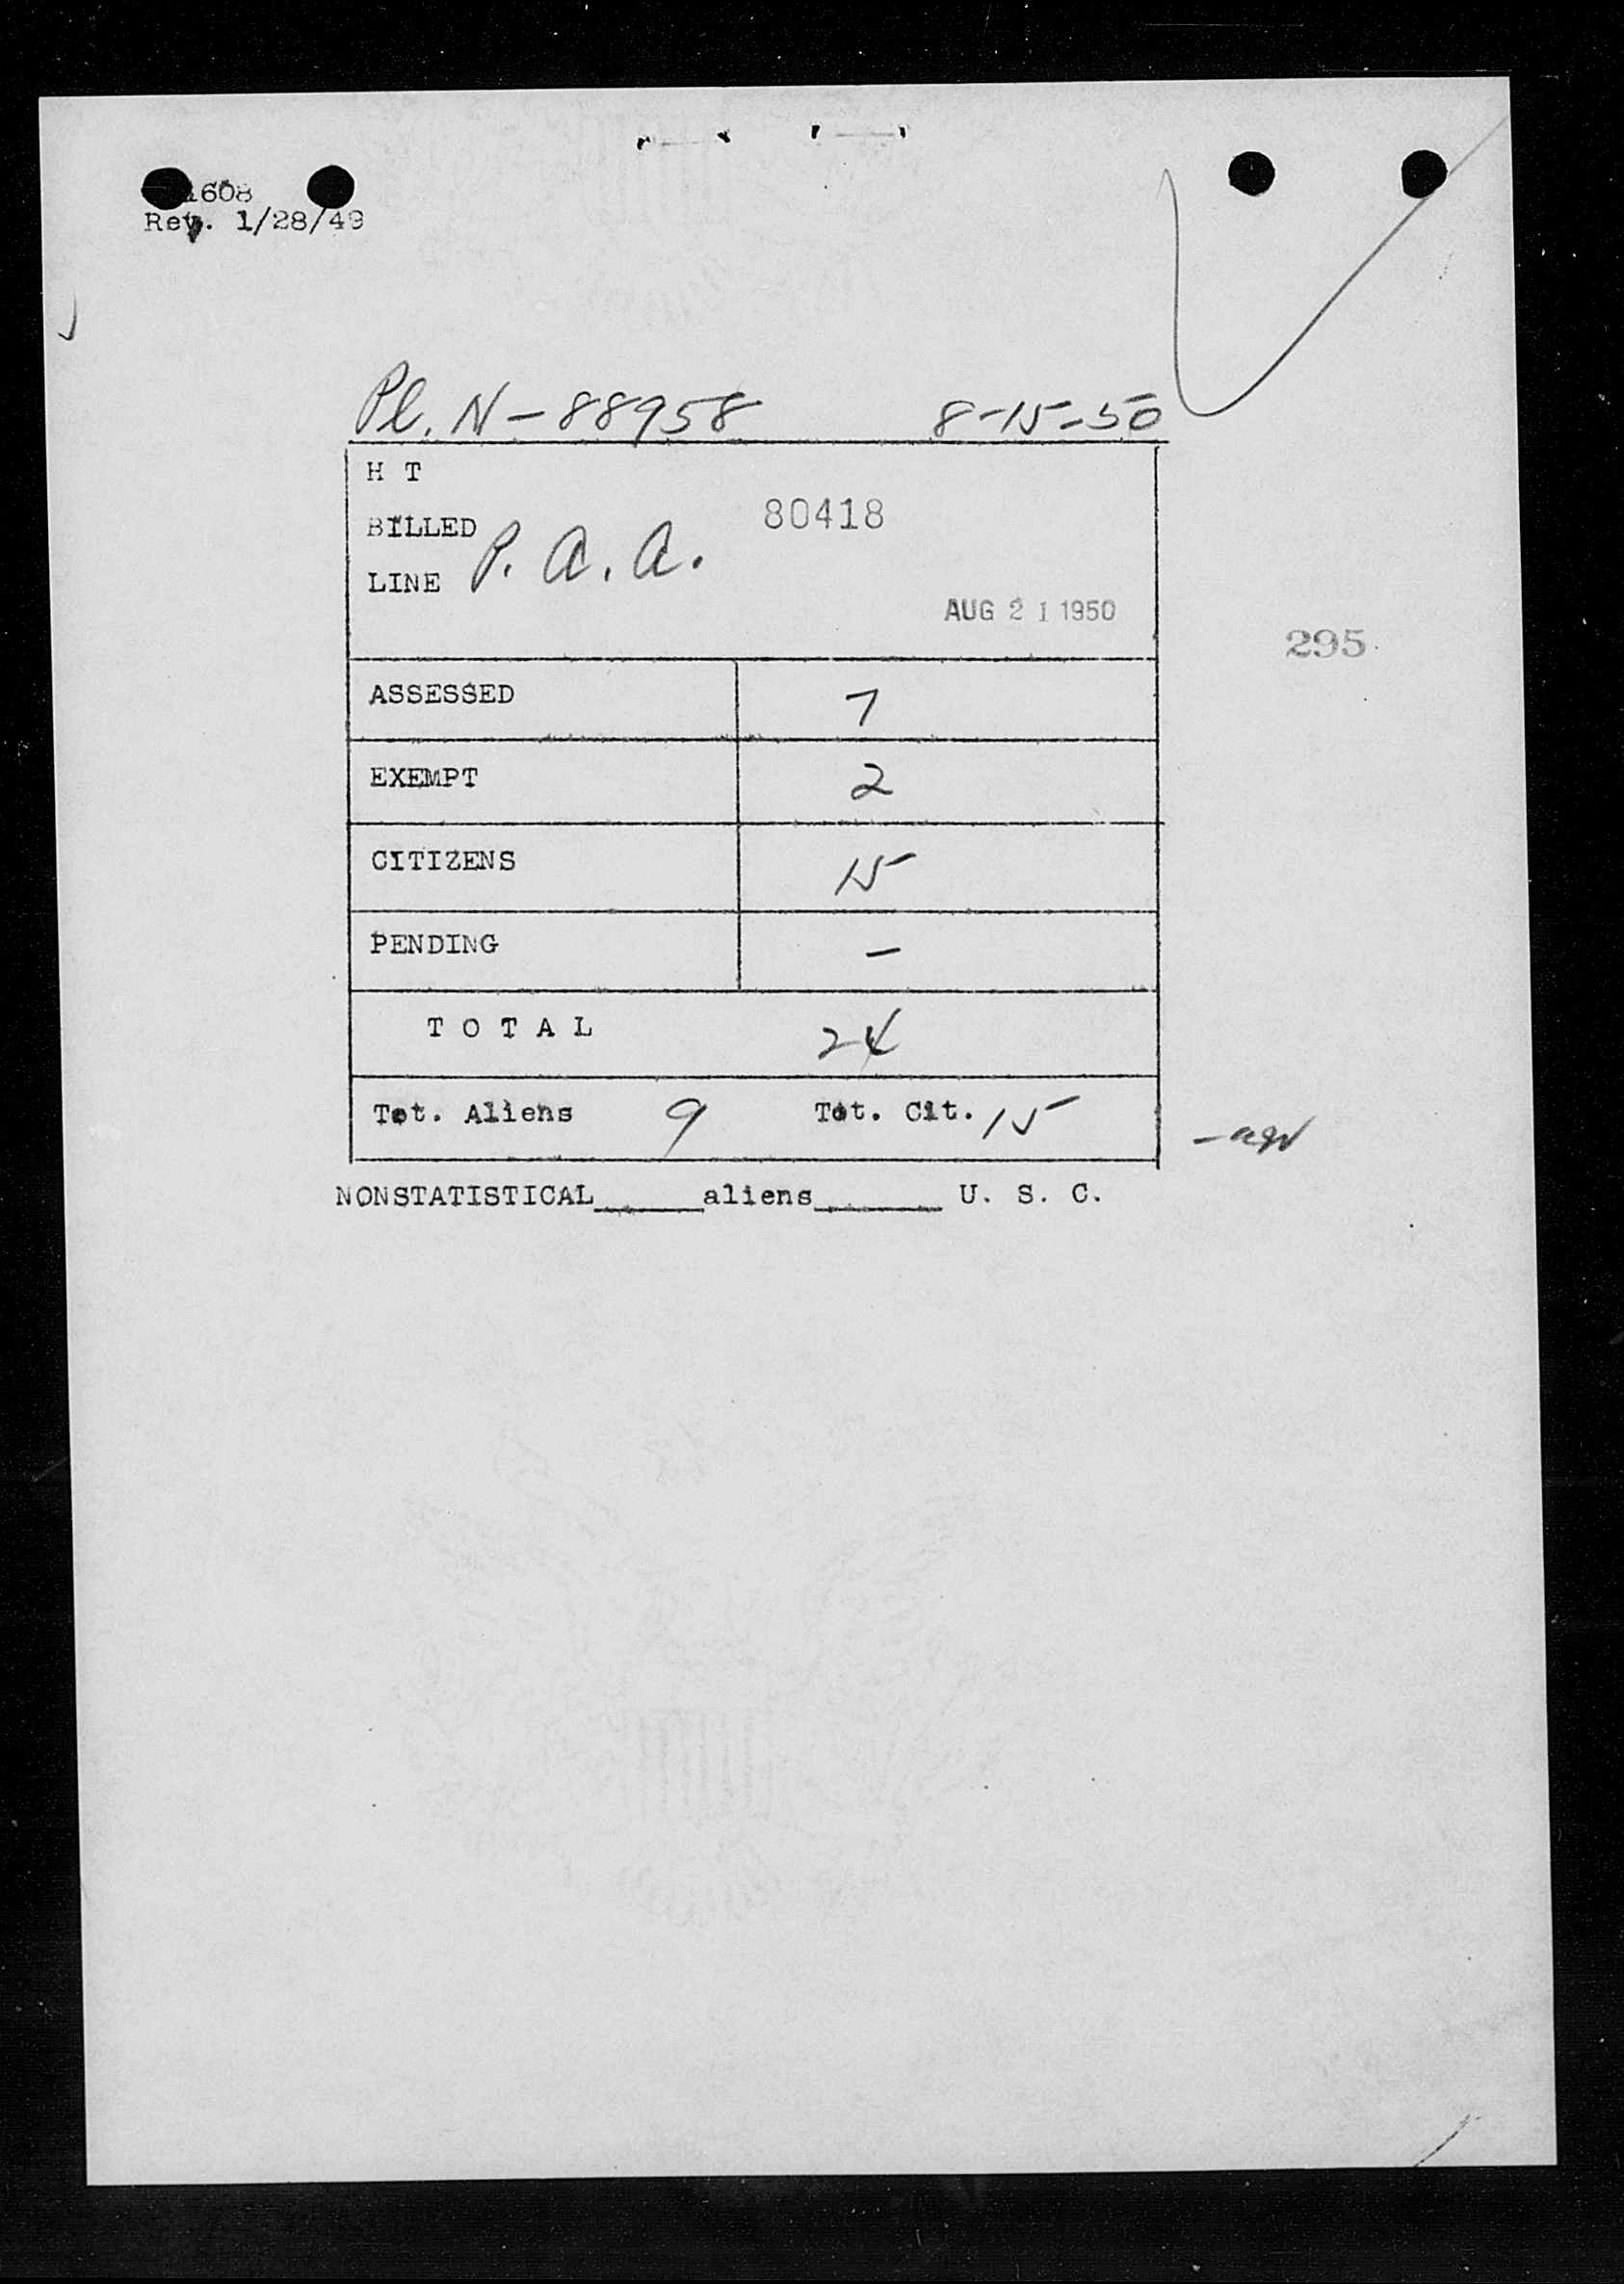 1608
Rev. 1/28/49
Pl. N-88958 8-15-50
H T
BILLED 80418
LINE P. A. A.
AUG 21 1950
295
ASSESSED 7
EXEMPT 2
CITIZENS 15
PENDING -
T O T A L 24
Tot. Aliens 9 Tot. Cit. 15
NONSTATISTICAL_____aliens______ U. S. C.